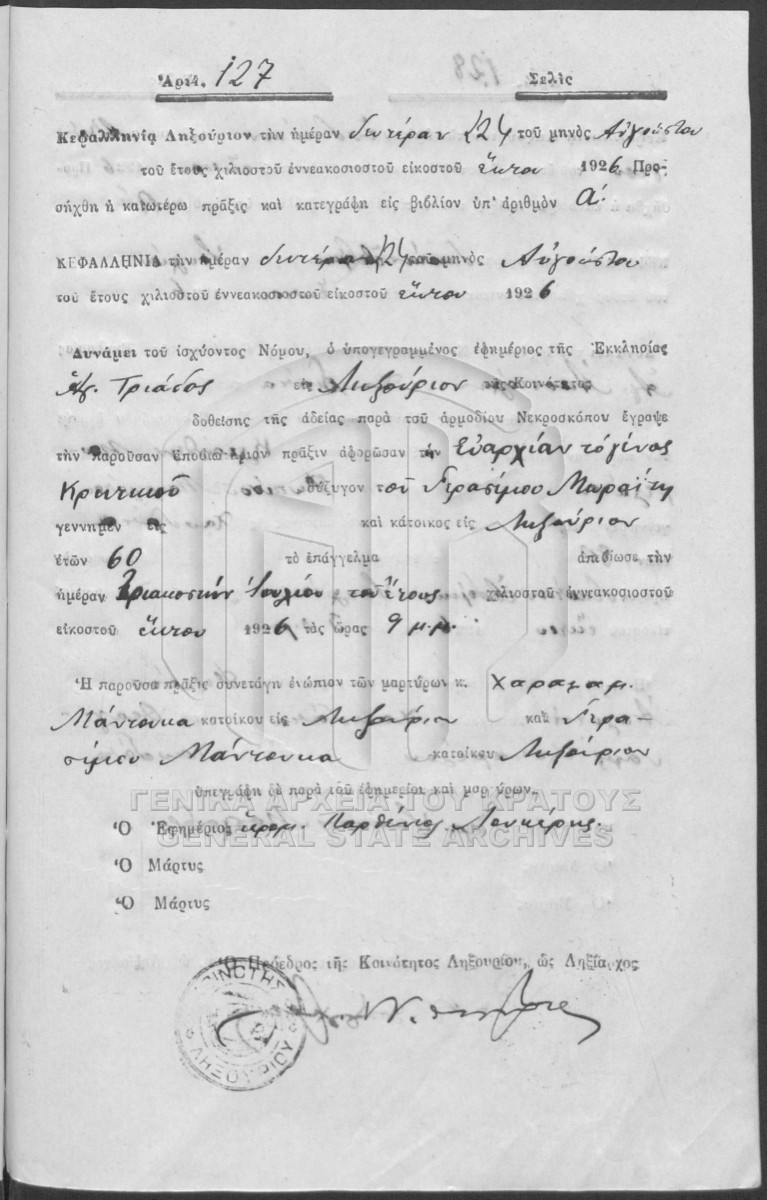 Ἀριθ. 127 Σελὶς
Κεφαλληνία Ληξούριον τὴν ἡμέραν δευτέραν τοῦ μηνὸς Αὐγούστου
τοῦ ἔτους χιλιοστοῦ ἐννεακοσιοστοῦ εἰκοστοῦ ἕκτου 1926 Προ-
σήχθη ἡ κατωτέρω πρᾶξις καὶ κατεγράφη εἰς βιβλίον ὑπ' ἀριθμὸν Α'.
ΚΕΦΑΛΛΗΝΙΑ τὴν ἡμέραν τοῦ μηνὸς Αὐγούστου
τοῦ ἔτους χιλιοστοῦ ἐννεακοσιοστοῦ εἰκοστοῦ ἕκτου 1926
Δυνάμει τοῦ ἰσχύοντος Νόμου, ὁ ὑπογεγραμμένος ἐφημέριος τῆς Ἐκκλησίας
Ἁγ. Τριάδος εἰς Ληξούριον τῆς Κοινότητος
δοθείσης τῆς ἀδείας παρὰ τοῦ ἁρμοδίου Νεκροσκόπου ἔγραψε
τὴν παροῦσαν ἀποβιωτήριον πρᾶξιν ἀφορῶσαν τὴν Εὐαρχίαν τὸ γένος
Κρητικοῦ σύζυγον τοῦ Γερασίμου Μωραΐτη
γεννημεν εἰς καὶ κάτοικος εἰς Ληξούριον
ἐτῶν 60 τὸ ἐπάγγελμα ἀπεβίωσε τὴν
ἡμέραν Τριακοστὴν Ἰουλίου τοῦ ἔτους χιλιοστοῦ ἐννεακοσιοστοῦ
εἰκοστοῦ ἕκτου 1926 τὰς ὥρας 9 μ.μ.
Ἡ παροῦσα πρᾶξις συνετάγη ἐνώπιον τῶν μαρτύρων κ. Χαραλαμ.
Μάντουκα κατοίκου εἰς Ληξούριον καὶ Γερα-
σίμου Μάντουκα κατοίκου Ληξούριον
ὑπεγράφη δὲ παρὰ τοῦ ἐφημερίου καὶ μαρτύρων.
ΓΕΝΙΚΑ ΑΡΧΕΙΑ ΤΟΥ ΚΡΑΤΟΥΣ
Ὁ Ἐφημέριος ἱερομ. Παρθένιος Λουκέρης.
GENERAL STATE ARCHIVES
Ὁ Μάρτυς
Ὁ Μάρτυς
Ὁ Πρόεδρος τῆς Κοινότητος Ληξουρίου, ὡς Ληξίαρχος
ΚΟΙΝΟΤΗΣ
ΛΗΞΟΥΡΙΟΥ